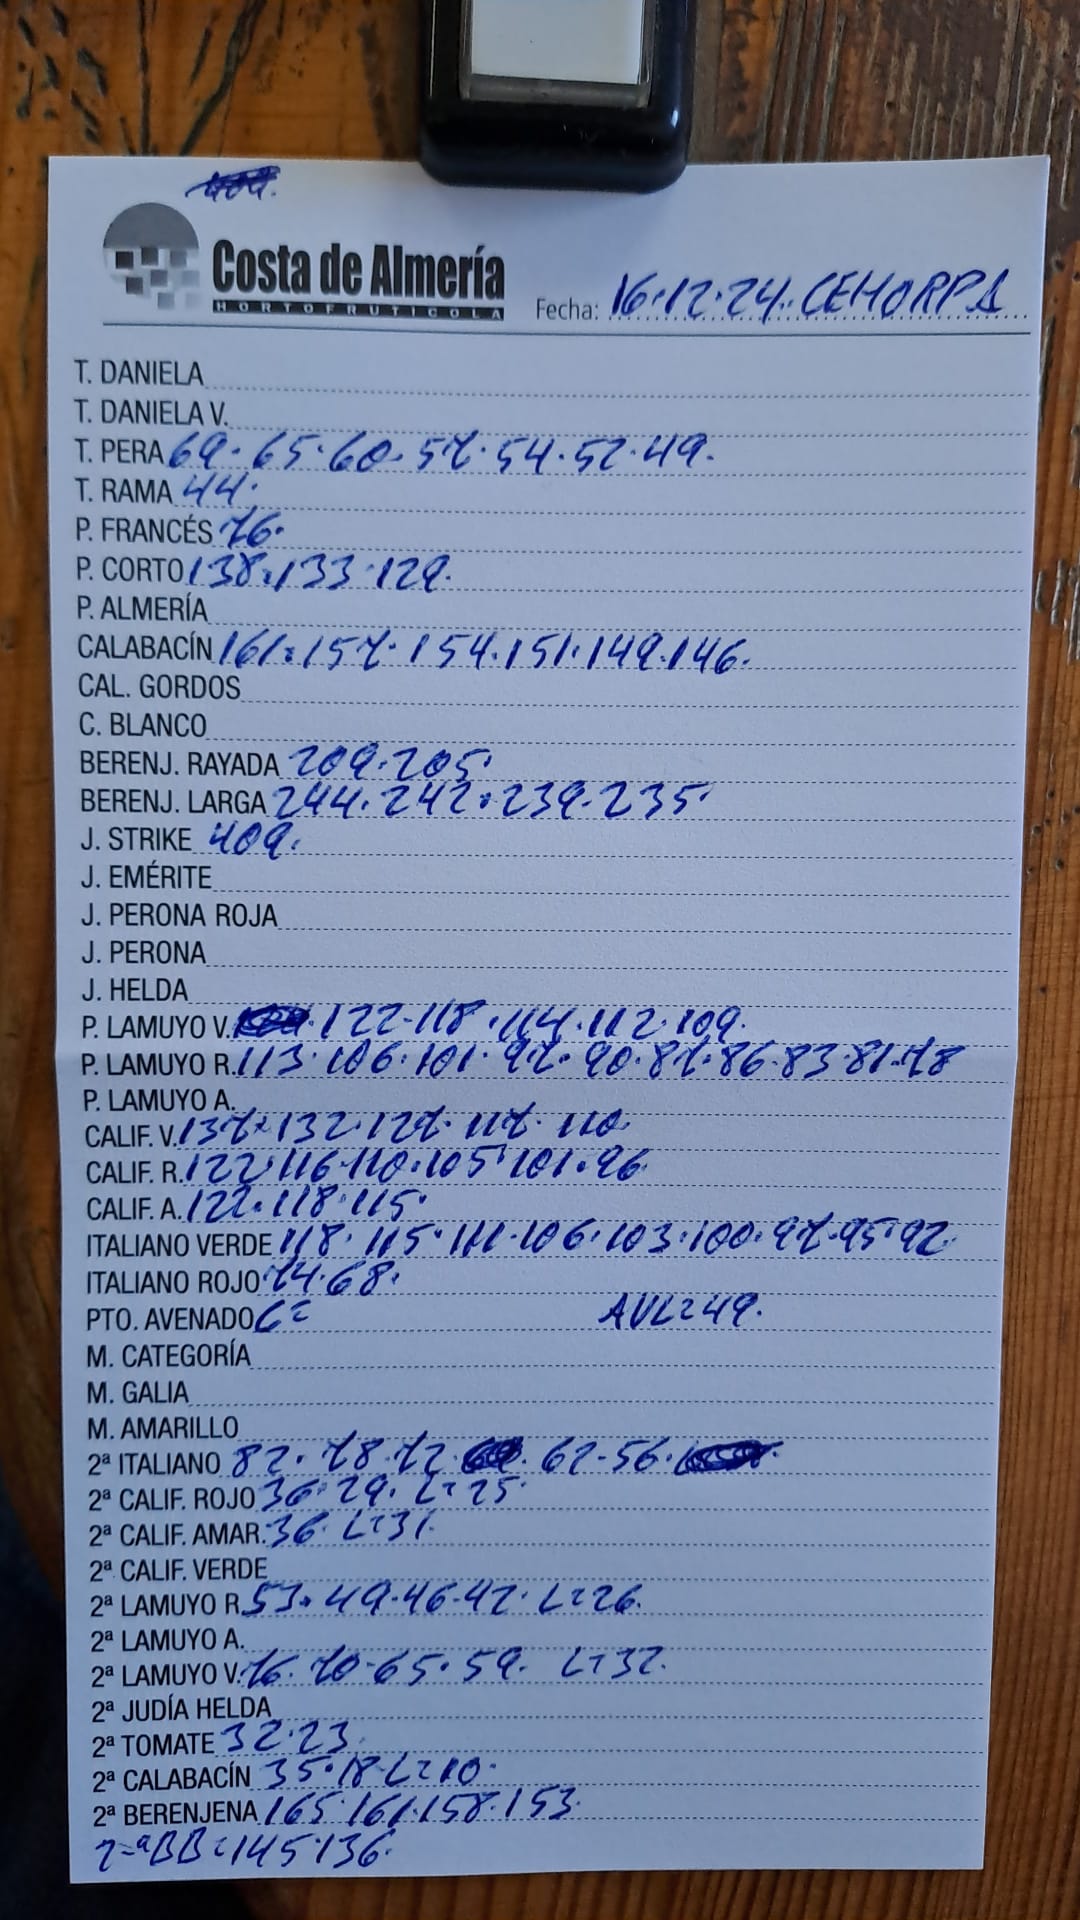 Costa de Almería
HORTOFRUTICOLA
Fecha: 16.12.24. CEHORPA
T. DANIELA
T. DANIELA V.
T. PERA 69. 65. 60. 57. 54. 52. 49.
T. RAMA 44.
P. FRANCÉS 76.
P. CORTO 138. 133. 129.
P. ALMERÍA
CALABACÍN 161. 157. 154. 151. 149. 146.
CAL. GORDOS
C. BLANCO
BERENJ. RAYADA 209. 205.
BERENJ. LARGA 244. 242. 239. 235.
J. STRIKE 409.
J. EMÉRITE
J. PERONA ROJA
J. PERONA
J. HELDA
P. LAMUYO V. 122. 118. 114. 112. 109.
P. LAMUYO R. 113. 106. 101. 97. 90. 87. 86. 83. 81. 78
P. LAMUYO A.
CALIF. V. 137. 132. 127. 117. 110.
CALIF. R. 122. 116. 110. 105. 101. 96
CALIF. A. 122. 118. 115.
ITALIANO VERDE 118. 115. 111. 106. 103. 100. 97. 95. 92.
ITALIANO ROJO 74. 68.
PTO. AVENADO AVL=49.
M. CATEGORÍA
M. GALIA
M. AMARILLO
2ª ITALIANO 82. 78. 72. 62. 56.
2ª CALIF. ROJO 36. 29. L=25.
2ª CALIF. AMAR. 36. L=31.
2ª CALIF. VERDE
2ª LAMUYO R. 53. 49. 46. 42. L=26.
2ª LAMUYO A.
2ª LAMUYO V. 76. 70. 65. 59. L=32.
2ª JUDÍA HELDA
2ª TOMATE 32. 23.
2ª CALABACÍN 35. 18. L=10.
2ª BERENJENA 165. 161. 158. 153.
2=ªBB=145.136.